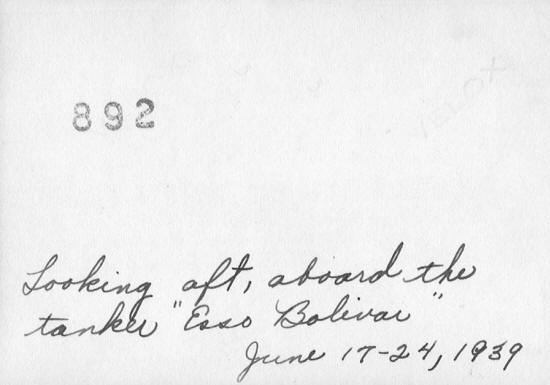 VELOX
892
Looking aft, aboard the
tanker "Esso Bolivar"
June 17-24, 1939